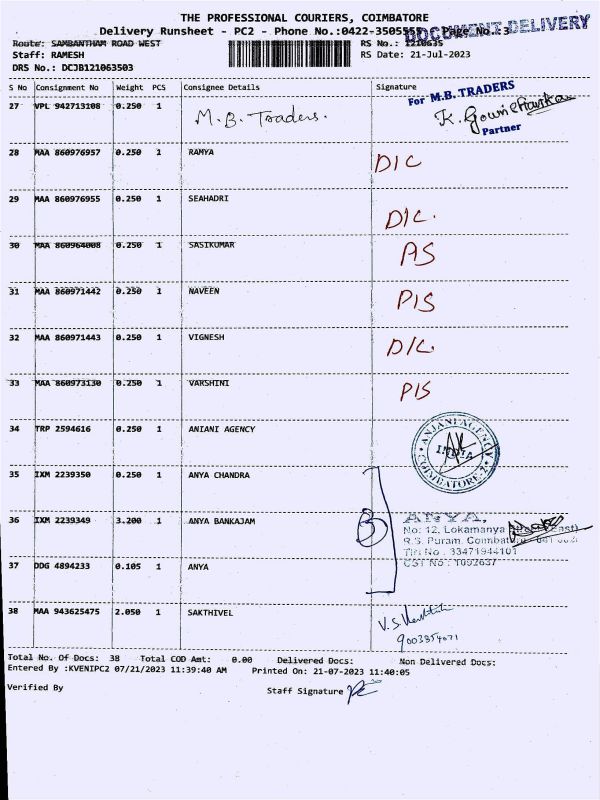 THE PROFESSIONAL COURIERS, COIMBATORE
Delivery Runsheet - PC2 - Phone No.:0422-3505555 Page No.:3
DOCUMENT DELIVERY
Route: SAMBANTHAM ROAD WEST RS No.: 1210635
Staff: RAMESH RS Date: 21-Jul-2023
DRS No.: DCJB121063503
S No Consignment No Weight PCS Consignee Details Signature
27 VPL 942713108 0.250 1 M.B. Traders. For M.B. TRADERS
K. Gowrishankar
Partner
28 MAA 860976957 0.250 1 RAMYA D/C
29 MAA 860976955 0.250 1 SEAHADRI D/C.
30 MAA 860964008 0.250 1 SASIKUMAR AS
31 MAA 860971442 0.250 1 NAVEEN P/S
32 MAA 860971443 0.250 1 VIGNESH D/C.
33 MAA 860973130 0.250 1 VARSHINI P/S
34 TRP 2594616 0.250 1 ANIANI AGENCY ANJANI AGENCY INDIA COIMBATORE-2
35 IXM 2239350 0.250 1 ANYA CHANDRA
36 IXM 2239349 3.200 1 ANYA BANKAJAM 3 ANYA,
No: 12, Lokamanya
R.S. Puram, Coimbatore - 641 002
Tin No : 33471944101
CST No : 1092637
37 DDG 4894233 0.105 1 ANYA
38 MAA 943625475 2.050 1 SAKTHIVEL V.S.
9003854071
Total No. Of Docs: 38 Total COD Amt: 0.00 Delivered Docs: Non Delivered Docs:
Entered By :KVENIPC2 07/21/2023 11:39:40 AM Printed On: 21-07-2023 11:40:05
Verified By Staff Signature